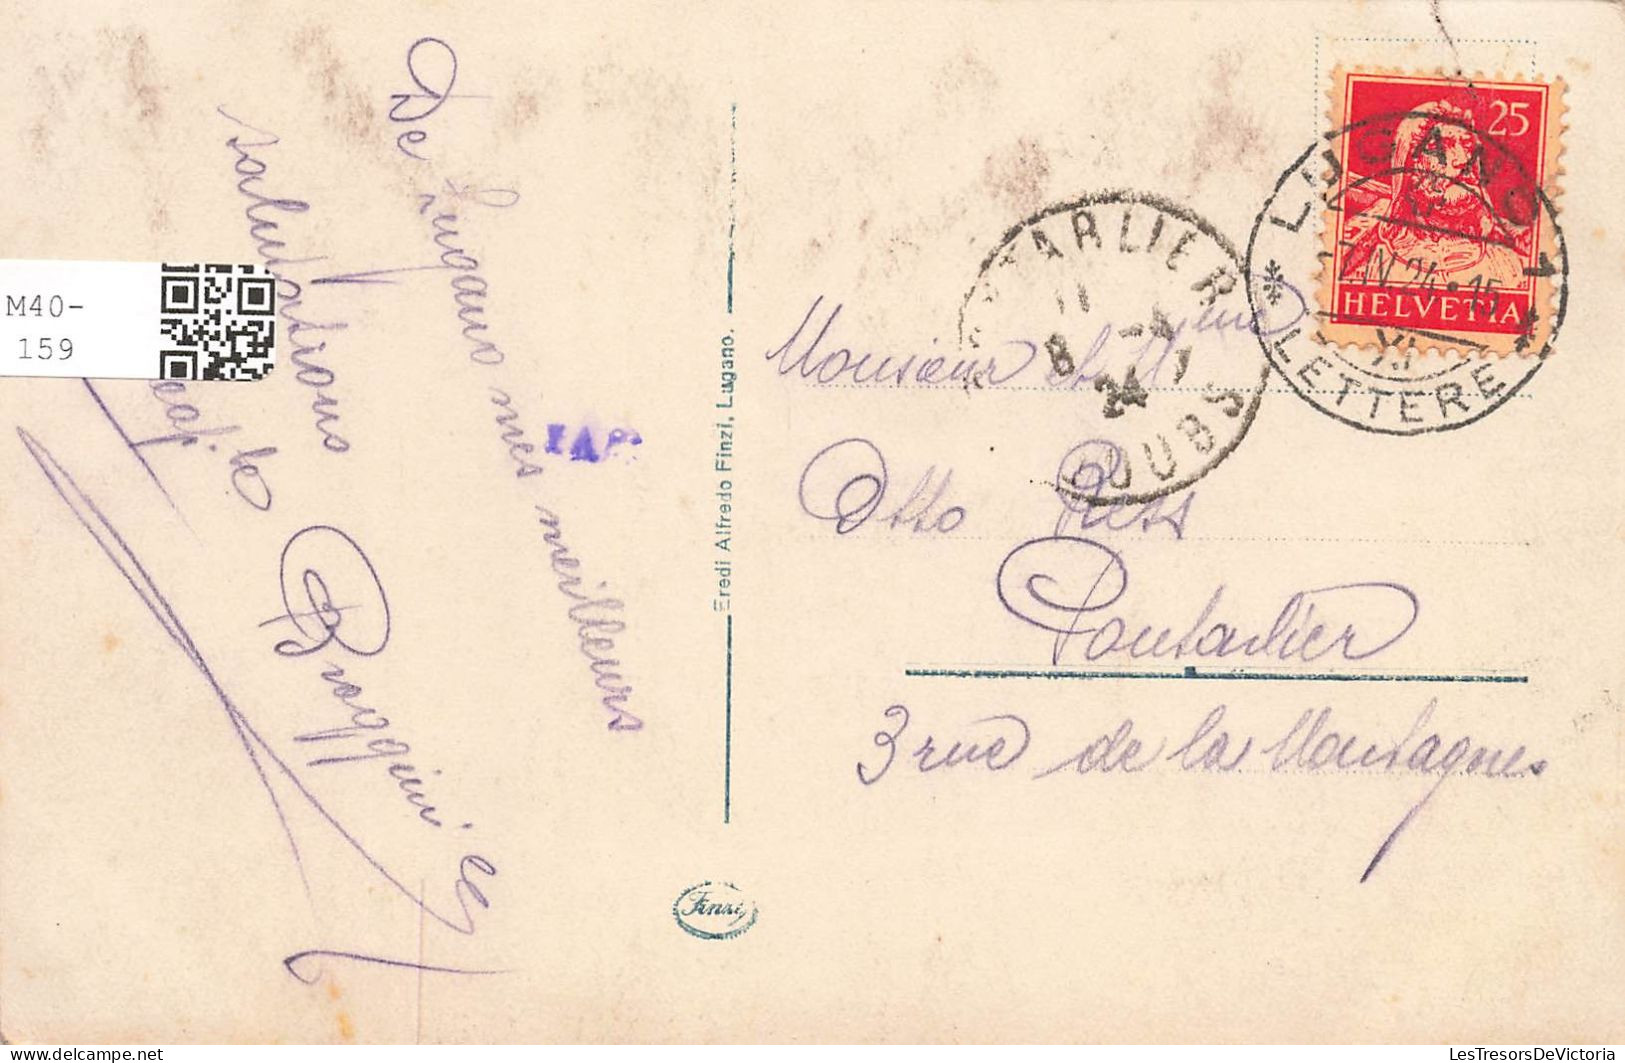 De Lugano mes meilleurs
salutations
Broggini
M40-
159
Eredi Alfredo Finzi, Lugano.
Finzi
25
HELVETIA
LUGANO 1
IV 24 • 15
LETTERE
TARLIER
8
24
DOUBS
Monsieur
Otto
Pontarlier
3 rue de la Montagnes
LesTresorsDeVictoria
www.delcampe.net